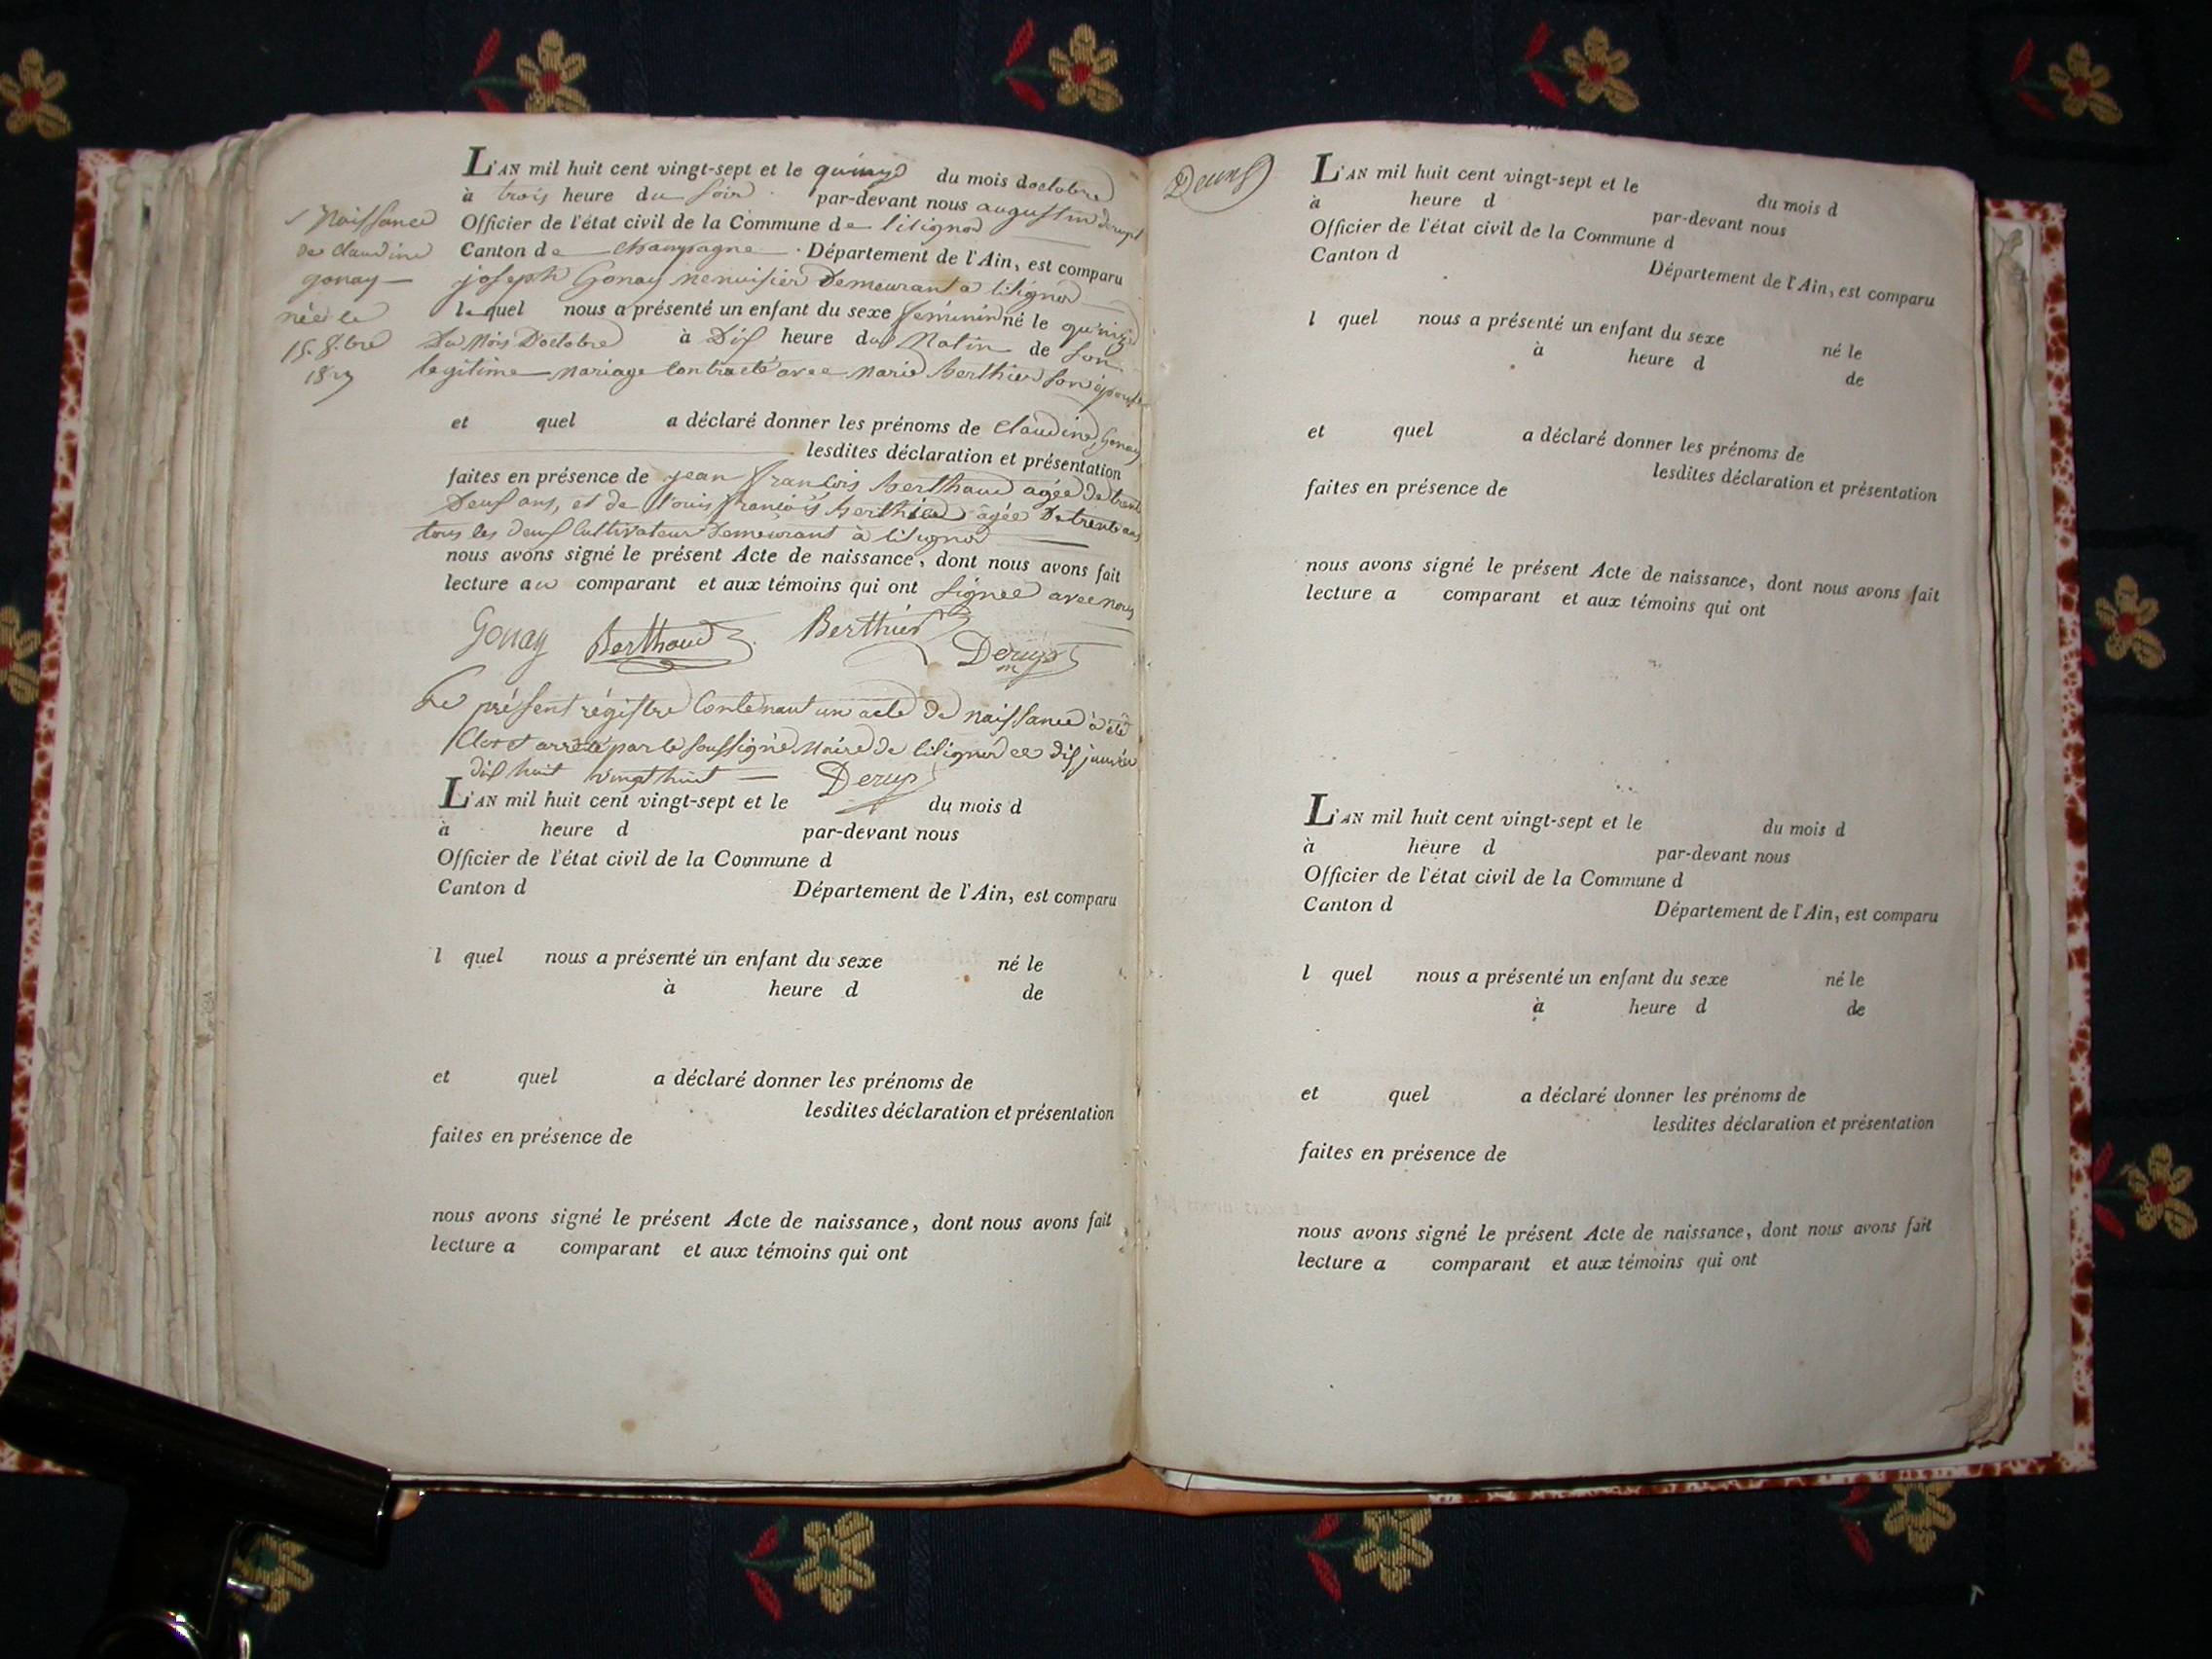 L'AN mil huit cent vingt-sept et le quinze du mois doctobre
à trois heure du soir par-devant nous augustin derupt
Officier de l'état civil de la Commune de lilignod
Canton de champagne Département de l'Ain, est comparu
joseph Gonay menuisier Demeurant a lilignod
lequel nous a présenté un enfant du sexe feminin né le quinze
Du Mois Doctobre à Dix heure du Matin de son
legitime mariage contracté avec marie berthier son épouse
et quel a déclaré donner les prénoms de claudine Gonay
lesdites déclaration et présentation
faites en présence de jean françois berthaud agée de trente
Deux ans, et de Louis françois berthier agée De trente ans
tous les deux Cultivateur Demeurant à lilignod
nous avons signé le présent Acte de naissance, dont nous avons fait
lecture au comparant et aux témoins qui ont signee avec nous
Gonay Berthaud Berthier Derupt
m
Naissance
de claudine
gonay
née le
15 8.bre
1827
Le présent régistre Contenant un acte de naissance à été
Clos et arreté par le soussigné Maire de lilignod ce dix janvier
dix huit vingt huit Derupt
L'AN mil huit cent vingt-sept et le du mois d
à heure d par-devant nous
Officier de l'état civil de la Commune d
Canton d Département de l'Ain, est comparu
l quel nous a présenté un enfant du sexe né le
à heure d de
et quel a déclaré donner les prénoms de
lesdites déclaration et présentation
faites en présence de
nous avons signé le présent Acte de naissance, dont nous avons fait
lecture a comparant et aux témoins qui ont
L'AN mil huit cent vingt-sept et le du mois d
à heure d par-devant nous
Officier de l'état civil de la Commune d
Canton d Département de l'Ain, est comparu
l quel nous a présenté un enfant du sexe né le
à heure d de
et quel a déclaré donner les prénoms de
lesdites déclaration et présentation
faites en présence de
nous avons signé le présent Acte de naissance, dont nous avons fait
lecture a comparant et aux témoins qui ont
L'AN mil huit cent vingt-sept et le du mois d
à heure d par-devant nous
Officier de l'état civil de la Commune d
Canton d Département de l'Ain, est comparu
l quel nous a présenté un enfant du sexe né le
à heure d de
et quel a déclaré donner les prénoms de
lesdites déclaration et présentation
faites en présence de
nous avons signé le présent Acte de naissance, dont nous avons fait
lecture a comparant et aux témoins qui ont